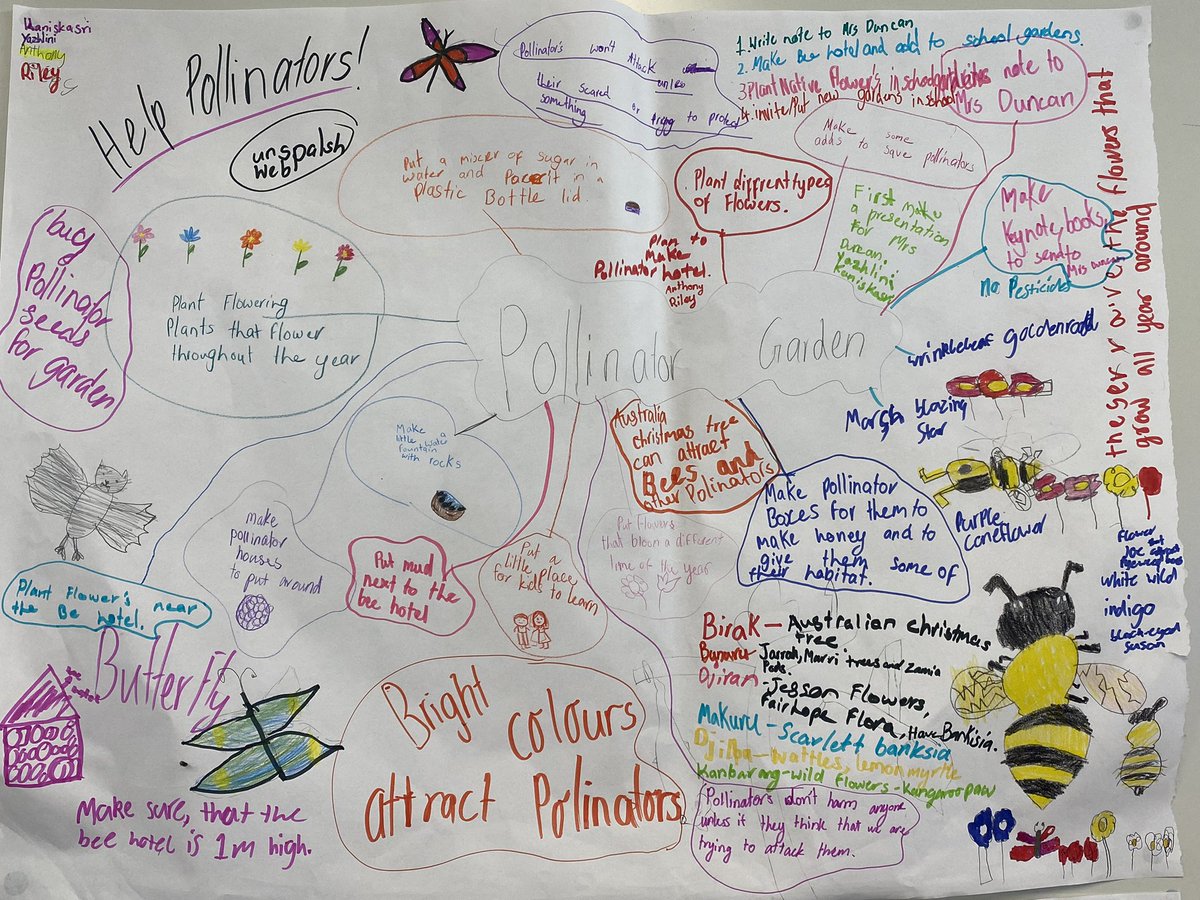 Kaniskasri
Yazhlini
Anthony
Riley
Help Pollinators!
unspalsh
web
Pollinator's won't Attack
unless
their scared or trying to protect
something
1. Write note to Mrs Duncan
2. Make Bee hotel and add to school gardens.
3. Plant Native Flower's in school
4. invite/Put new gardens in school
note to
Mrs Duncan
Make some
adds to save pollinators
Put a mixer of sugar in
water and Place it in a
Plastic Bottle lid.
Plant diffrent types
of Flowers.
Plan to
Make
Pollinator hotel.
Anthony
Riley
First make
a presentation
for Mrs
Duncan.
Yazhlini
Kaniskasri
Make
Keynote books
to send to
Mrs Duncan
No Pesticides
the flowers that
grow all year around
buy
Pollinator
seeds
for garden
Plant Flowering
Plants that flower
throughout the year
Pollinator Garden
wrinkleleaf goldenrod
Marsh blazing
star
Purple
coneflower
Flower
white wild
indigo
black-eyed
susan
Make a
little water
fountain
with rocks
Australia
christmas tree
can attract
Bees and
other Polinators
Make pollinator
Boxes for them to
make honey and to
give them some of
their habitat.
Put flowers
that bloom a different
time of the year
make
pollinator
houses
to put around
Put mud
next to the
bee hotel
Put a
little place
for kids to learn
Plant Flower's near
the Be hotel.
Butterfly
Make sure, that the
bee hotel is 1m high.
Bright colours
attract Polinators
Birak - Australian christmas
tree
Bunuru- Jarrah, Marri trees and Zamia
Pods.
Djiran - Jesson Flowers,
Fairhope Flora, Have Banksia.
Makuru - Scarlett banksia
Djilba - wattles, lemon myrtle
Kanbarang - wild flowers - Kangaroo paw
Pollinators don't harm anyone
unless it they think that we are
trying to attack them.